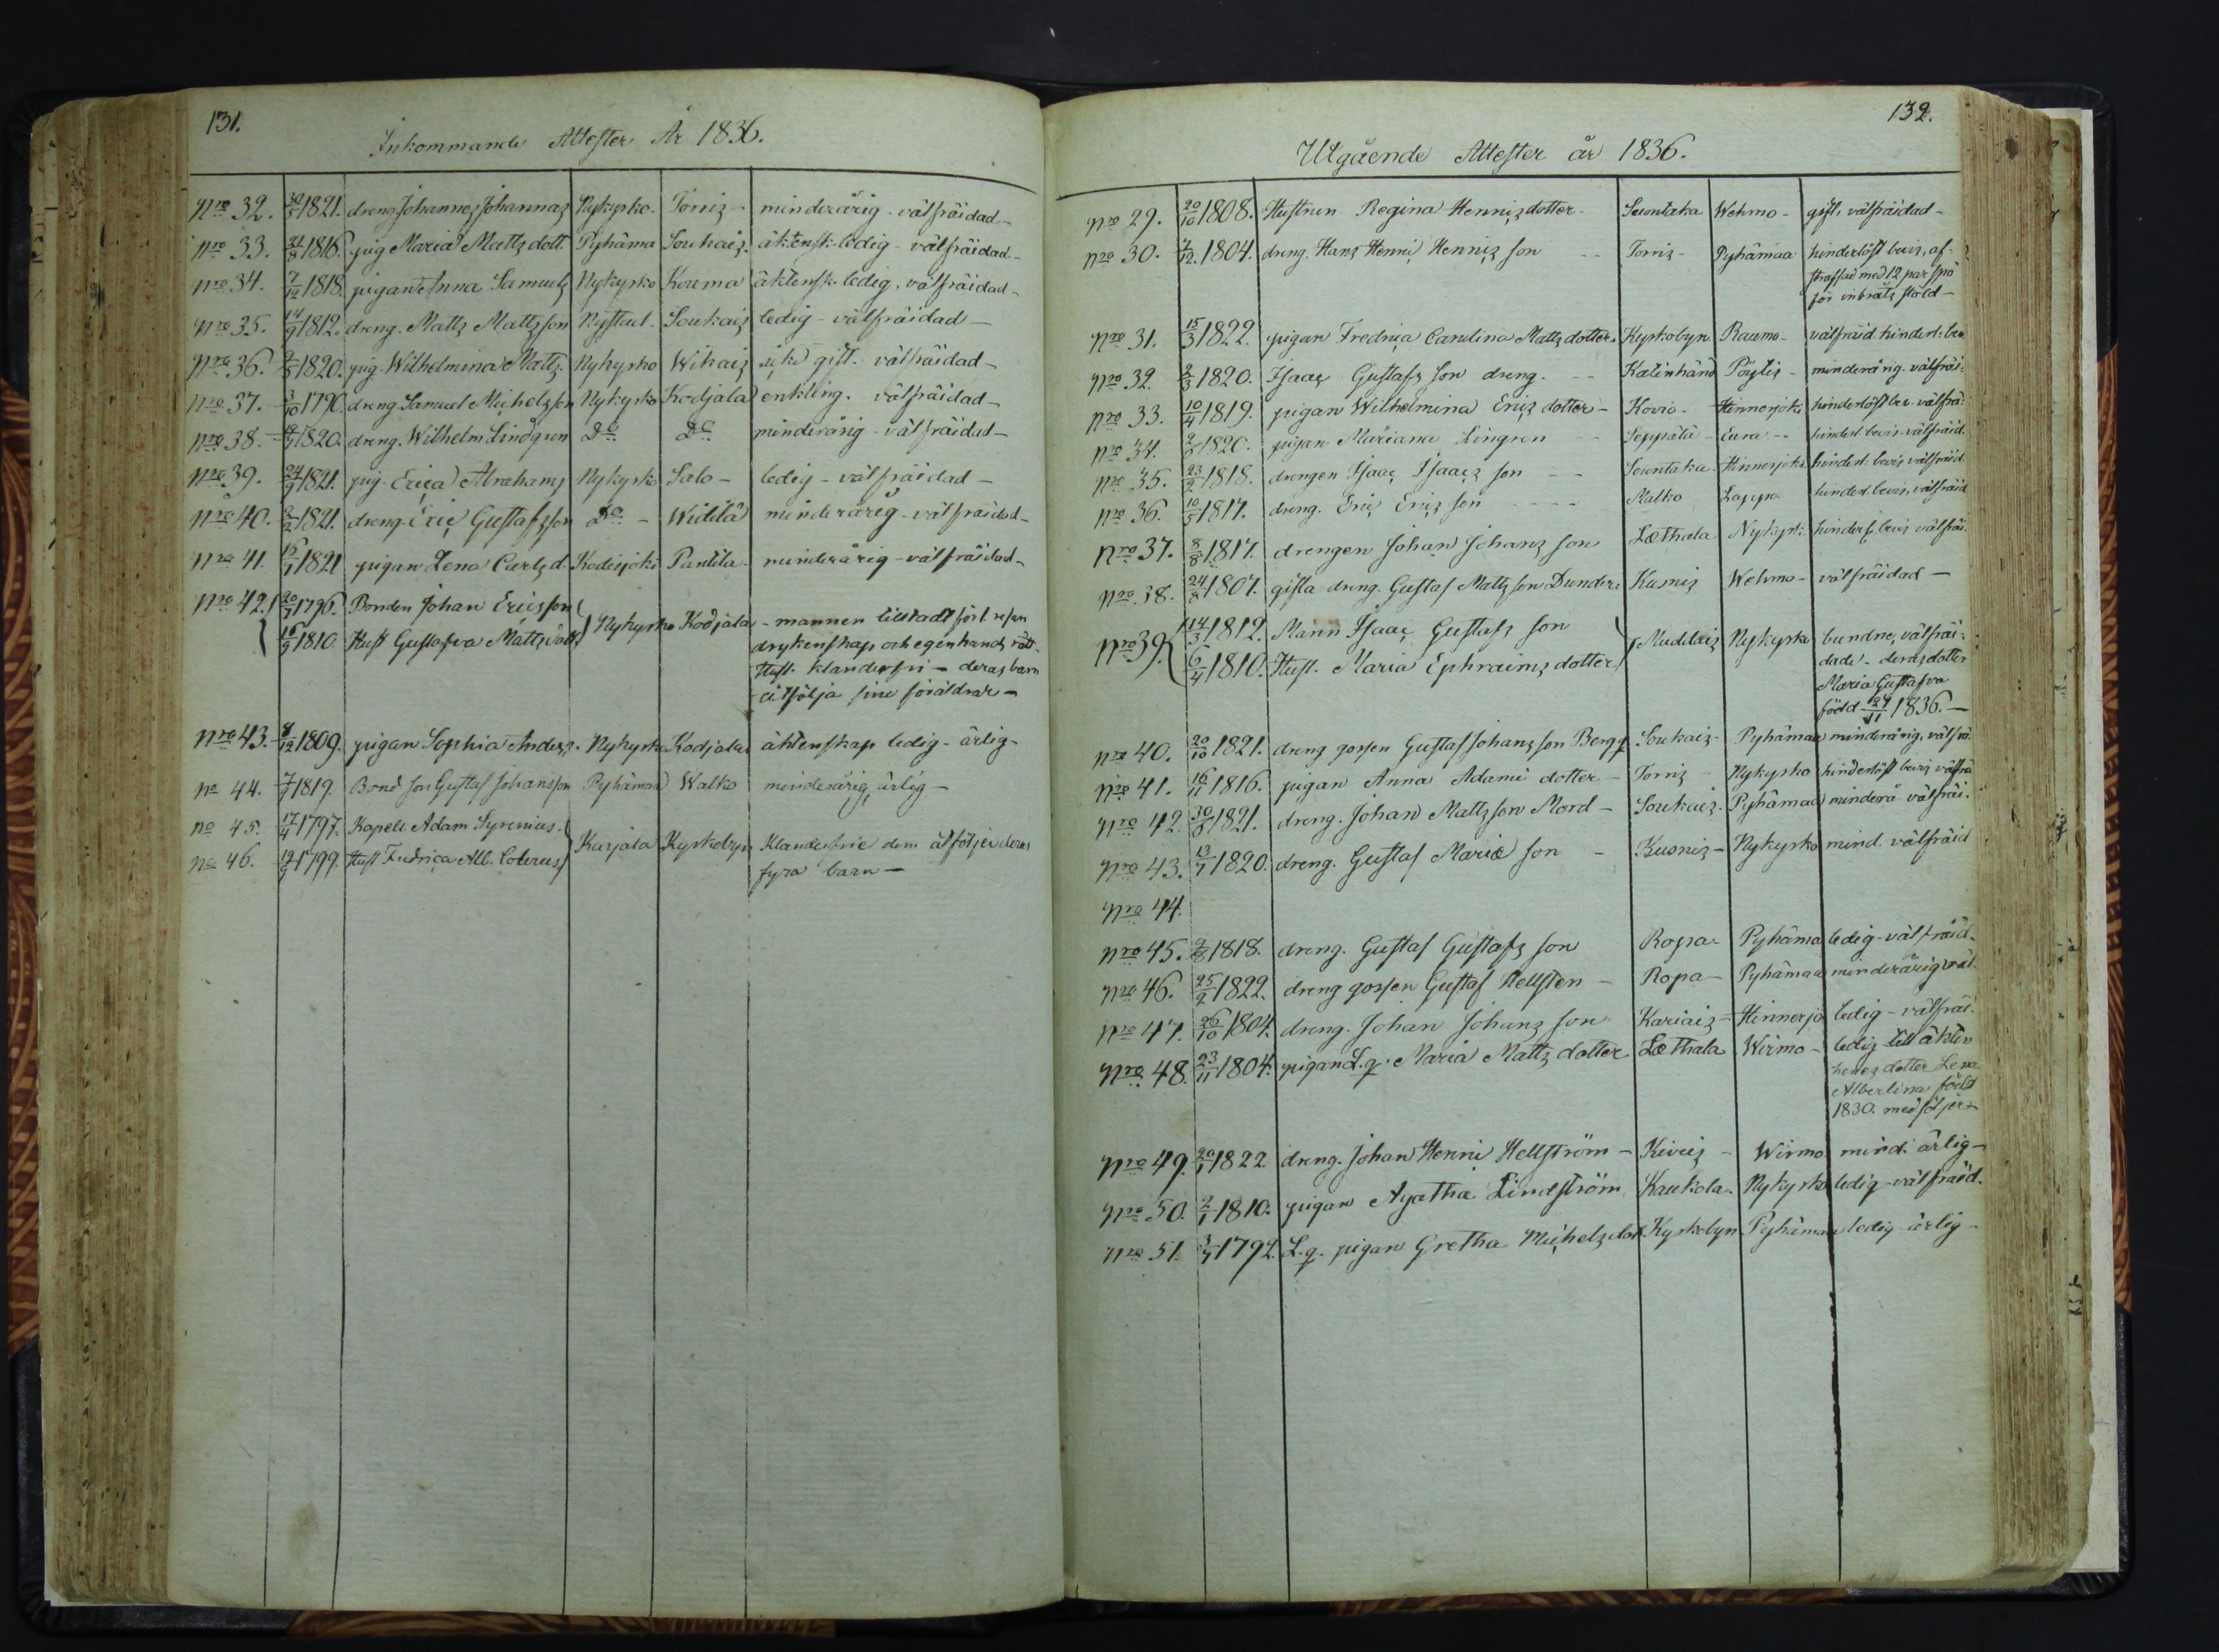 131.
Inkommande Attester År 1836.
Nro 32. 30/5 1821. dreng Johannes Johannas Nykyrko. Torris - minderårig - välfräidad -
Nro 33. 21/8 1818. pig Maria Matts dott. Pyhäma Soukais. äktensk. ledig - välfräidad -
Nro 34. 7/12 1818. pigan Anna Samuels Nykyrko Kouma äktensk. ledig, välfräidad -
Nro 35. 14/9 1812. dreng. Matts Mattsson Nystad. Soukais ledig - välfräidad -
Nro 36. 1820. pig. Wilhelmina Matts. Nykyrko Wikais icke gift - välfräidad -
Nro 37. 3/10 1790. dreng Samuel Michelsson Nykyrko Kodjala enkling. välfräidad -
Nro 38. 1820. dreng. Wilhelm Lindgren Do Do minderårig - välfräidad -
Nro 39. 24/9 1821. pig. Erica Abrahams Nykyrko Salo - ledig - välfräidad -
Nro 40. 1821. dreng. Eric Gustafsson Do - Widilä minderårig - välfräidad -
Nro 41. 16/1 1821 pigan Lena Carls d. Kodisjoki Pantila. minderårig - välfräidad -
Nro 42. 1796. Bonden Johan Ericsson
1810. Hust Gustafva Matts dott Nykyrko Kodjala - mannen för 1. resan
dryckenskap och egenhands rätt -
Hust. klanderfri - deras barn
åtfölja sine föräldrar -
Nro 43. 8/12 1809. pigan Sophia Anders. Nykyrko Kodjala äktenskap ledig - ärlig -
No 44. 1819. Bond son Gustaf Johansson Pyhämaa Walko minderårig, ärlig -
No 45. 17/4 1797. Kapell. Adam Syrenius.
No 46. 1799. Hust Fredrica Alb. Karjala Kyrkobyn Klanderfrie dem åtföljer deras
fyra barn -
132.
Utgående Attester år 1836.
Nro 29. 20/10 1808. Hustrun Regina Hennis dotter. Suontaka Wehmo - gift, välfräidad -
Nro 30. 4/12 1804. dreng. Hans Henric Hennis son Torris - Pyhämaa hinderlöst bevis, af-
straffad med 12 par spö
för inbrats stöld -
Nro 31. 15/3 1822. pigan Fredrica Carolina Matts dotter. Kyrkobyn Raumo - välfräid hinderl: bev
Nro 32. 1820. Isaac Gustafs son dreng. Pöytis - minderårig. välfräi:
Nro 33. 10/4 1819. pigan Wilhelmina Erics dotter - Kovio - Hinnerjoki hinderlöst bev. välfrä:
Nro 34. 1820. pigan Mariana Lingren Seppälä - Eura - hinderl. bevis välfräid.
Nro 35. 23/2 1818. drengen Isaac Isaacs son Suontaka. Hinnerjoki. hinderl. bevis välfräid.
Nro 36. 10/5 1817. dreng. Eric Erics son Malko Lappo hinderl. bevis, välfräid
Nro 37. 8/8 1817. drengen Johan Johans son Læthala Nykyrk. hinders bevis välfräi.
Nro 38. 24/8 1807. gifta dreng. Gustaf Matts son Dunder. Kusnis Wehmo - välfräidad -
Nro 39. 14/3 1812. Mann Isaac Gustafs son
6/4 1810. Hust. Maria Ephraims dotter Mudilais Nykyrko bundne, välfräi-
dade - deras dotter
Maria Gustafva
född 27/11 1836. -
Nro 40. 20/10 1821. dreng gossen Gustaf Johans son Bergg Soukais - Pyhämaa minderårig, välfrä
Nro 41. 16/11 1816. pigan Anna Adami dotter - Torris - Nykyrko hinderlöst bevis välfrä
Nro 42. 1821. dreng. Johan Mattsson Mord - Soukais. Pyhämaa minderå. välfräi.
Nro 43. 13/7 1820. dreng. Gustaf Mariæ son - Kusnis - Nykyrko mind. välfräid
Nro 44.
Nro 45. 1818. dreng. Gustaf Gustafs son Ropa - Pyhäma ledig - välfräid -
Nro 46. 25/2 1822. dreng gossen Gustaf Hellsten - Ropa - Pyhämaa minderårig väl.
Nro 47. 26/10 1804. dreng. Johan Johans son Kariais - Hinnerjo ledig - välfräi.
Nro 48. 23/11 1804. pigan L. q. Maria Matts dotter Læthala Wirmo - ledig till äkten
henes dotter Lena
Albertina född
1830. medföljer -
Nro 49. 20/1 1822 dreng. Johan Henric Hellström - Kiveis - Wirmo mind. ärlig -
Nro 50. 2/1 1810. pigan Agatha Lindström Kaukola. Nykyrko ledig - välfräid.
Nro 51. 3/7 1797. L. q. pigan Gretha Michels dot Kyrkobyn Pyhämaa ledig - ärlig -